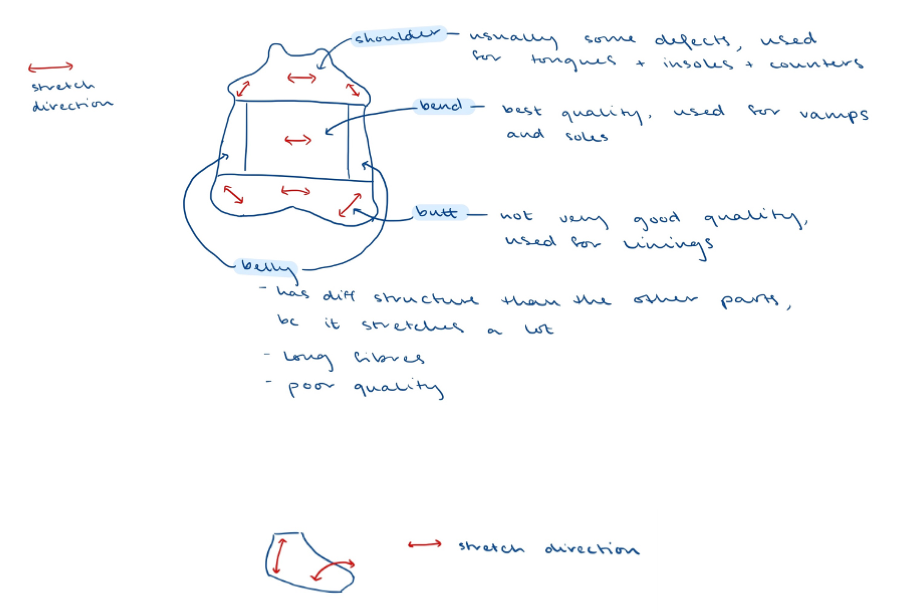 shoulder – usually some defects, used
for tongues + insoles + counters
stretch
direction
bend – best quality, used for vamps
and soles
butt – not very good quality,
used for linings
belly
- has diff structure than the other parts,
bc it stretches a lot
- long fibres
- poor quality
stretch direction